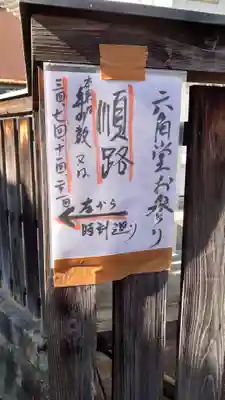 六角堂お参り
順路
左から
時計廻り
本年の数又は
三回、七回、十一回、二十一回